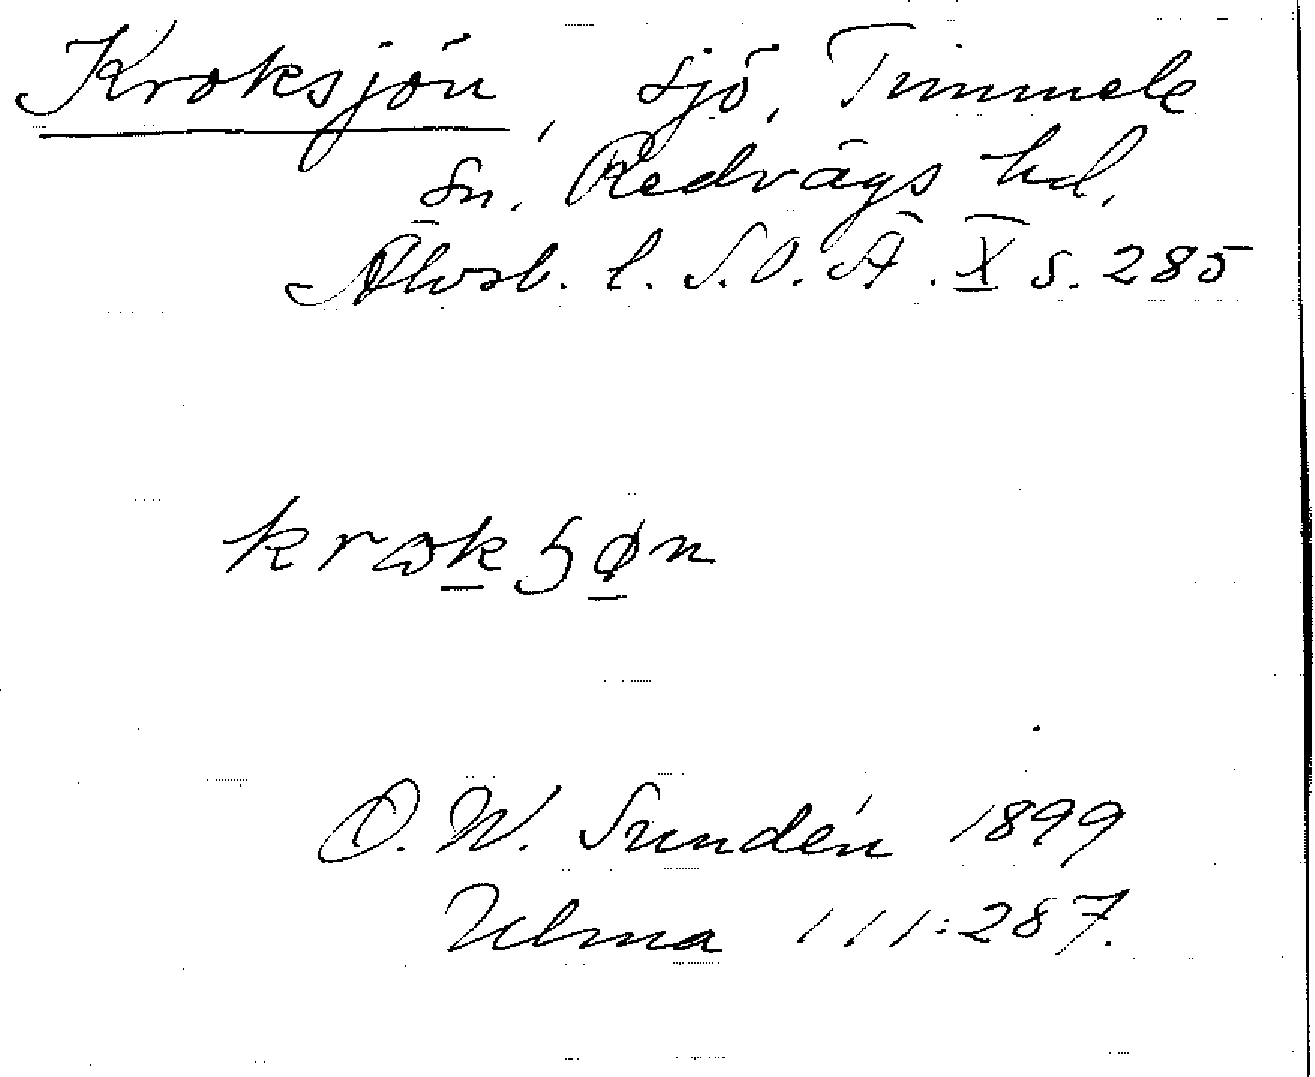 Kroksjön, sjö, Timmele
sn. Redvägs hd,
Älvsb. l. S.O.Ä. X s. 285
krɷkʂøn
D. W. Sundén 1899
Ulma 111:287.